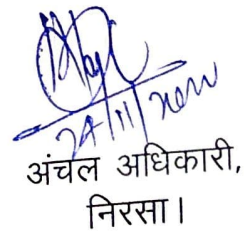 24/11/2020
अंचल अधिकारी,
निरसा।